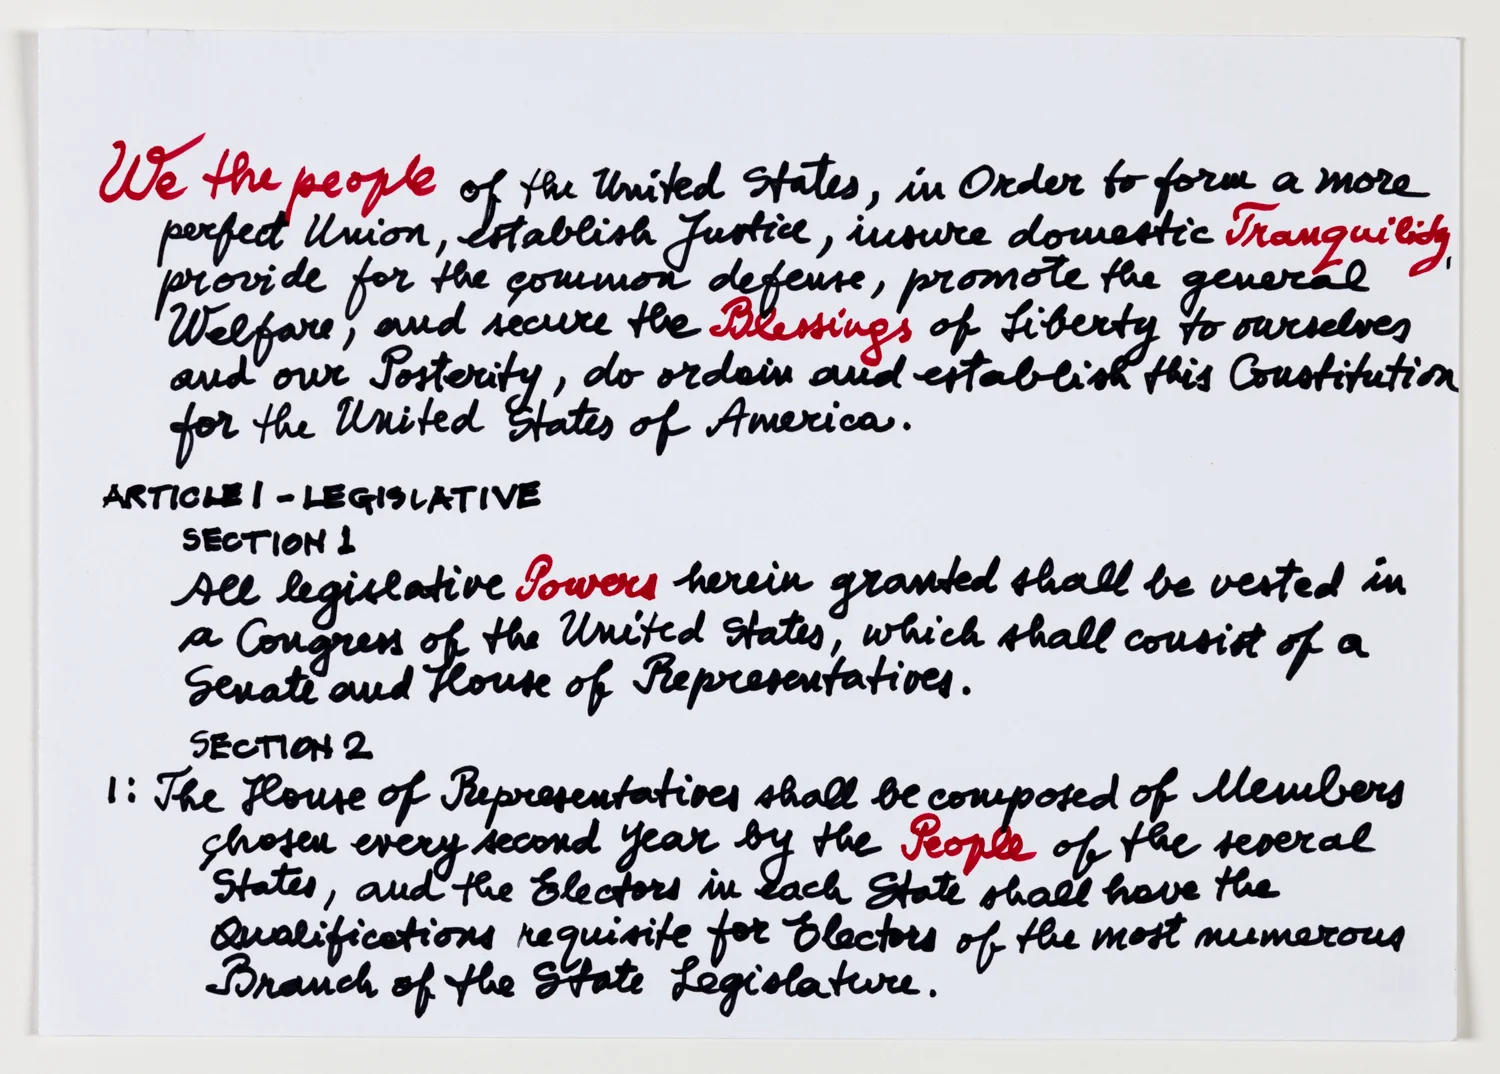 We the people of the United States, in Order to form a more
perfect Union, establish Justice, insure domestic Tranquility,
provide for the common defense, promote the general
Welfare, and secure the Blessings of Liberty to ourselves
and our Posterity, do ordain and establish this Constitution
for the United States of America.
ARTICLE 1 - LEGISLATIVE
SECTION 1
All legislative Powers herein granted shall be vested in
a Congress of the United States, which shall consist of a
Senate and House of Representatives.
SECTION 2
1: The House of Representatives shall be composed of Members
chosen every second Year by the People of the several
States, and the Electors in each State shall have the
Qualifications requisite for Electors of the most numerous
Branch of the State Legislature.